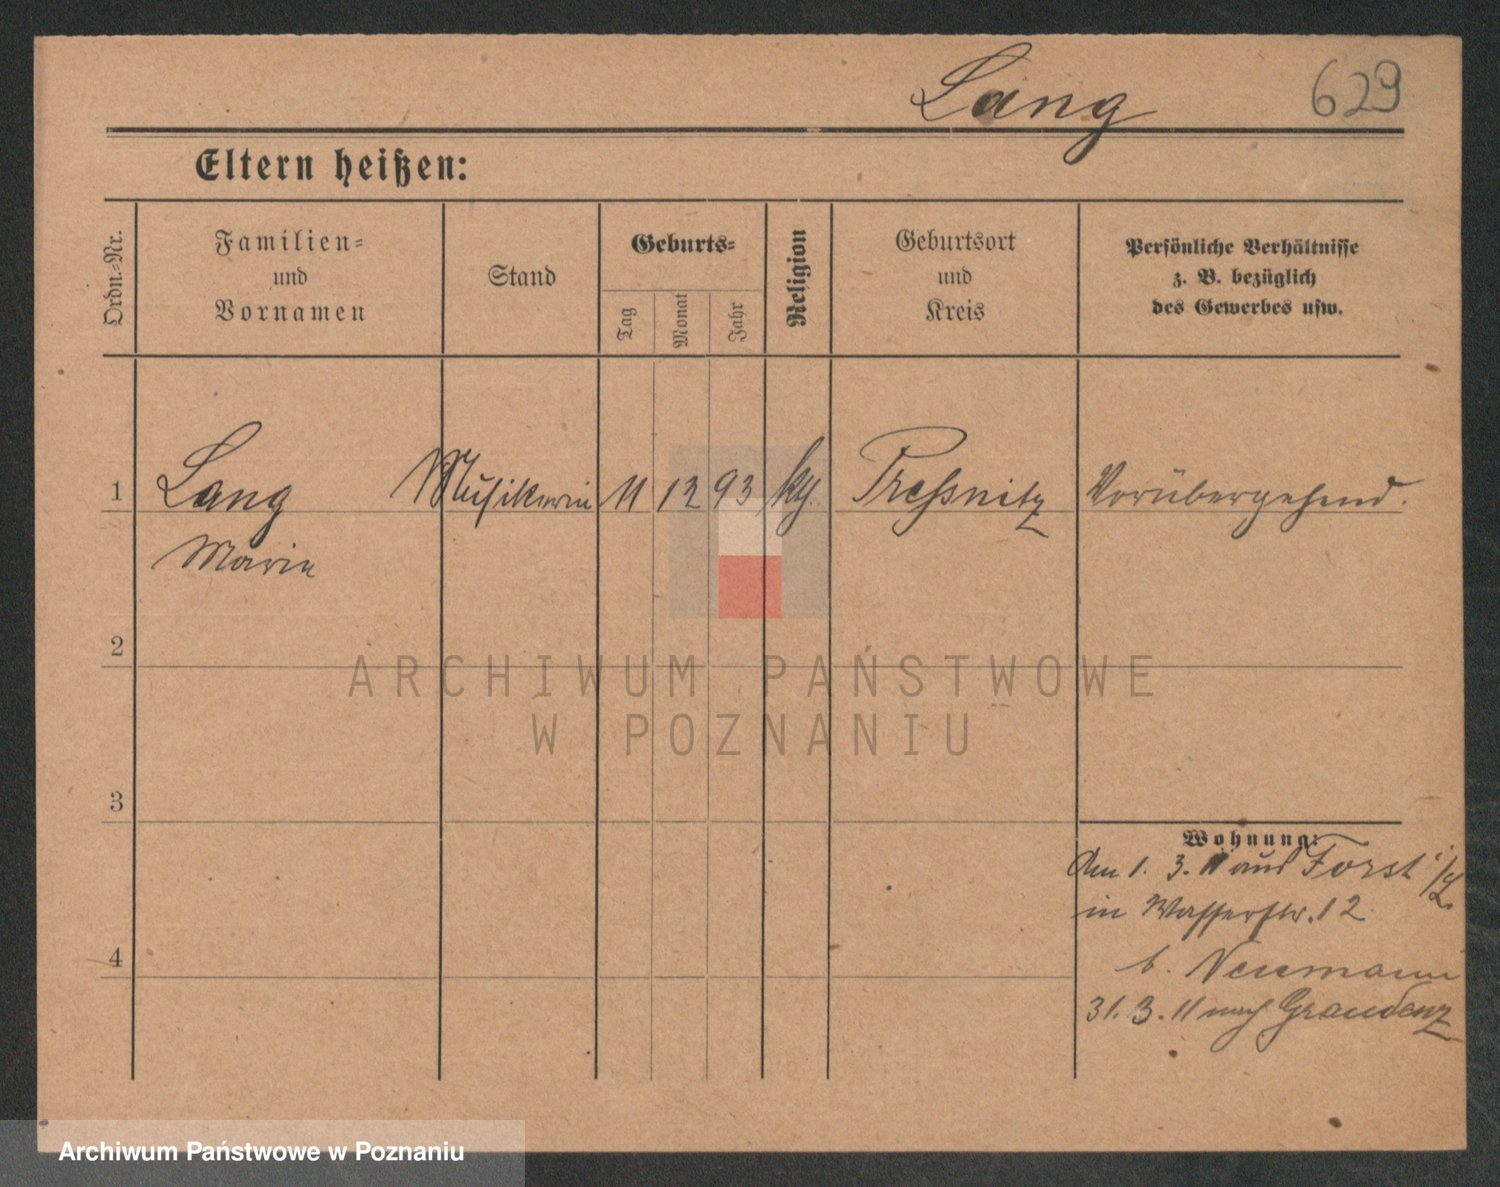 Lang 629
Eltern heißen:
Ordn.-Nr.
Familien-
und
Vornamen
Stand
Geburts-
Tag
Monat
Jahr
Religion
Geburtsort
und
Kreis
Persönliche Verhältnisse
z. B. bezüglich
des Gewerbes usw.
1 Lang Musikerin 11 12 93 kth. Pressnitz Vorübergehend.
Marie
2
3
4
Wohnung:
Am 1. 3. 11 aus Forst i/L.
in Wasserstr. 12
b. Neumann
31. 3. 11 nach Graudenz
ARCHIWUM PAŃSTWOWE
W POZNANIU
Archiwum Państwowe w Poznaniu